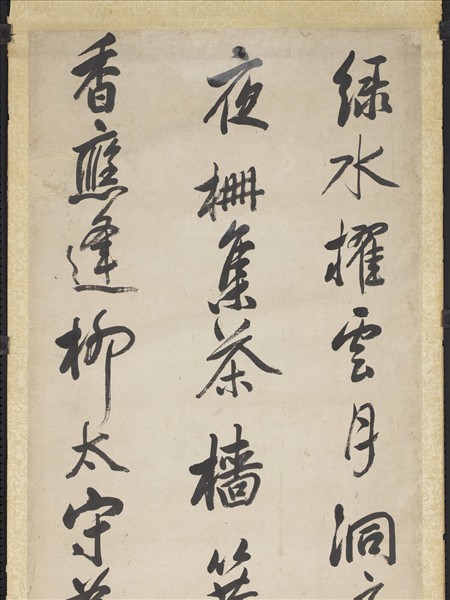 綠水櫂雲月洞
夜柵集茶檣
香應逢柳太守